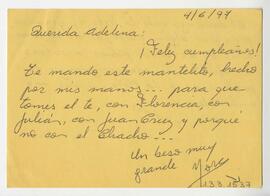 4/6/97
Querida Adelina:
¡Feliz cumpleaños!
Te mando este mantelito, hecho
por mis manos... para que
tomes el té, con Florencia, con
Julián, con Juan Cruz y porqué
no con el Chacho...
Un beso muy
grande Nora
133.1537